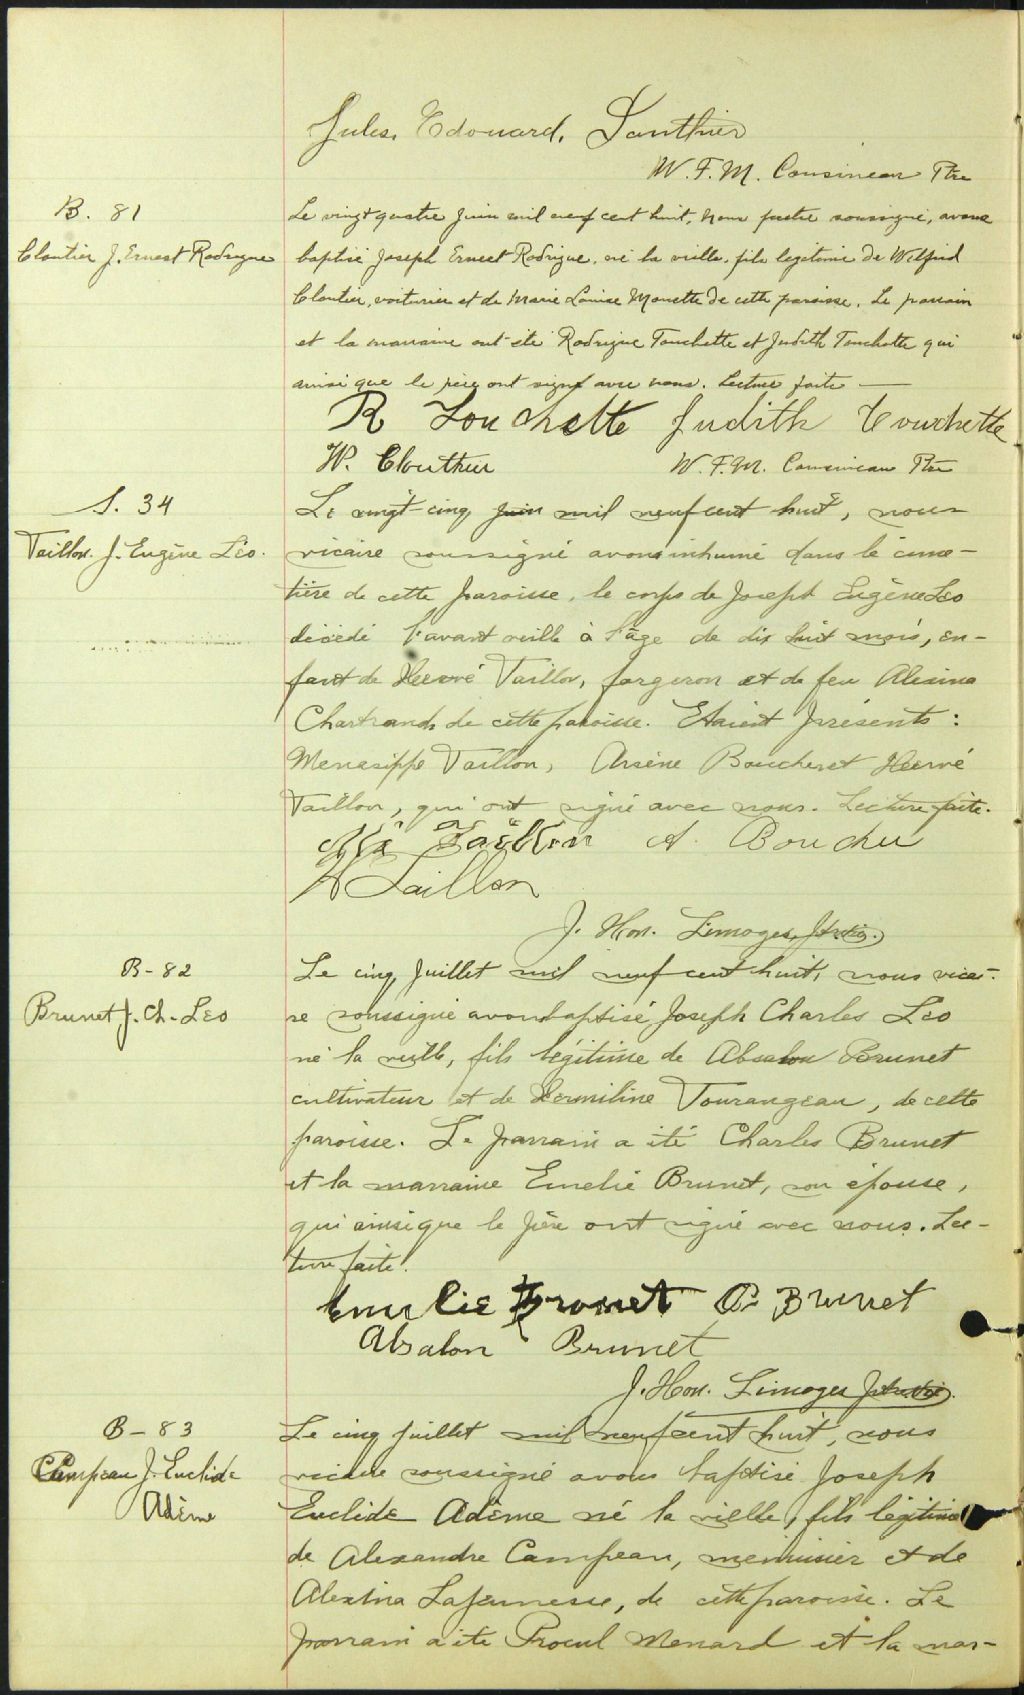 Jules Edouard Gauthier
W. F. M. Cousineau Ptre
B. 81
Cloutier J. Ernest Rodrigue
Le vingt quatre Juin mil neuf cent huit, nous pretre soussigné, avons
baptisé Joseph Ernest Rodrigue, né la vieille, fils legitime de Wilfrid
Cloutier, voiturier et de Marie Louise Monette de cette paroisse. Le parrain
et la marraine ont été Rodrigue Touchette et Judith Touchette qui
ainsi que le père ont signé avec nous. Lecture faite —
R Touchette Judith Touchette
W. Clouthier W. F. M. Cousineau Ptre
S. 34
Taillon J. Eugène Léo.
Le vingt cinq Juin mil neuf cent huit, nous
vicaire soussigné avons inhumé dans le cime-
tière de cette paroisse, le corps de Joseph Eugène Léo
décédé l'avant veille à l'âge de dix huit mois, en-
fant de Hervé Taillon, forgeron et de feu Alexina
Chartrand, de cette paroisse. Etaient présents :
Menasippe Taillon, Arsène Boucher et Hervé
Taillon, qui ont signé avec nous. Lecture faite.
Taillon A. Boucher
H Taillon
J. Hon. Limoges, Ptre vic.
B-82
Brunet J. Ch. Léo
Le cinq Juillet mil neuf cent huit, nous vicai-
re soussigné avons baptisé Joseph Charles Léo
né la veille, fils légitime de Absalon Brunet
cultivateur et de Hermiline Tourangeau, de cette
paroisse. Le parrain a été Charles Brunet
et la marraine Emelie Brunet, son épouse,
qui ainsi que le père ont signé avec nous. Lec-
ture faite.
Emelie Brunet C. Brunet
Absalon Brunet
J. Hon. Limoges Ptre vic.
B-83
Campeau J. Euclide
Adème
Le cinq juillet mil neuf cent huit, nous
vicaire soussigné avons baptisé Joseph
Euclide Adème né la vielle, fils légitime
de Alexandre Campeau, menuisier et de
Alexina Lajeunesse, de cette paroisse. Le
parrain a été Procul Menard et la mar-